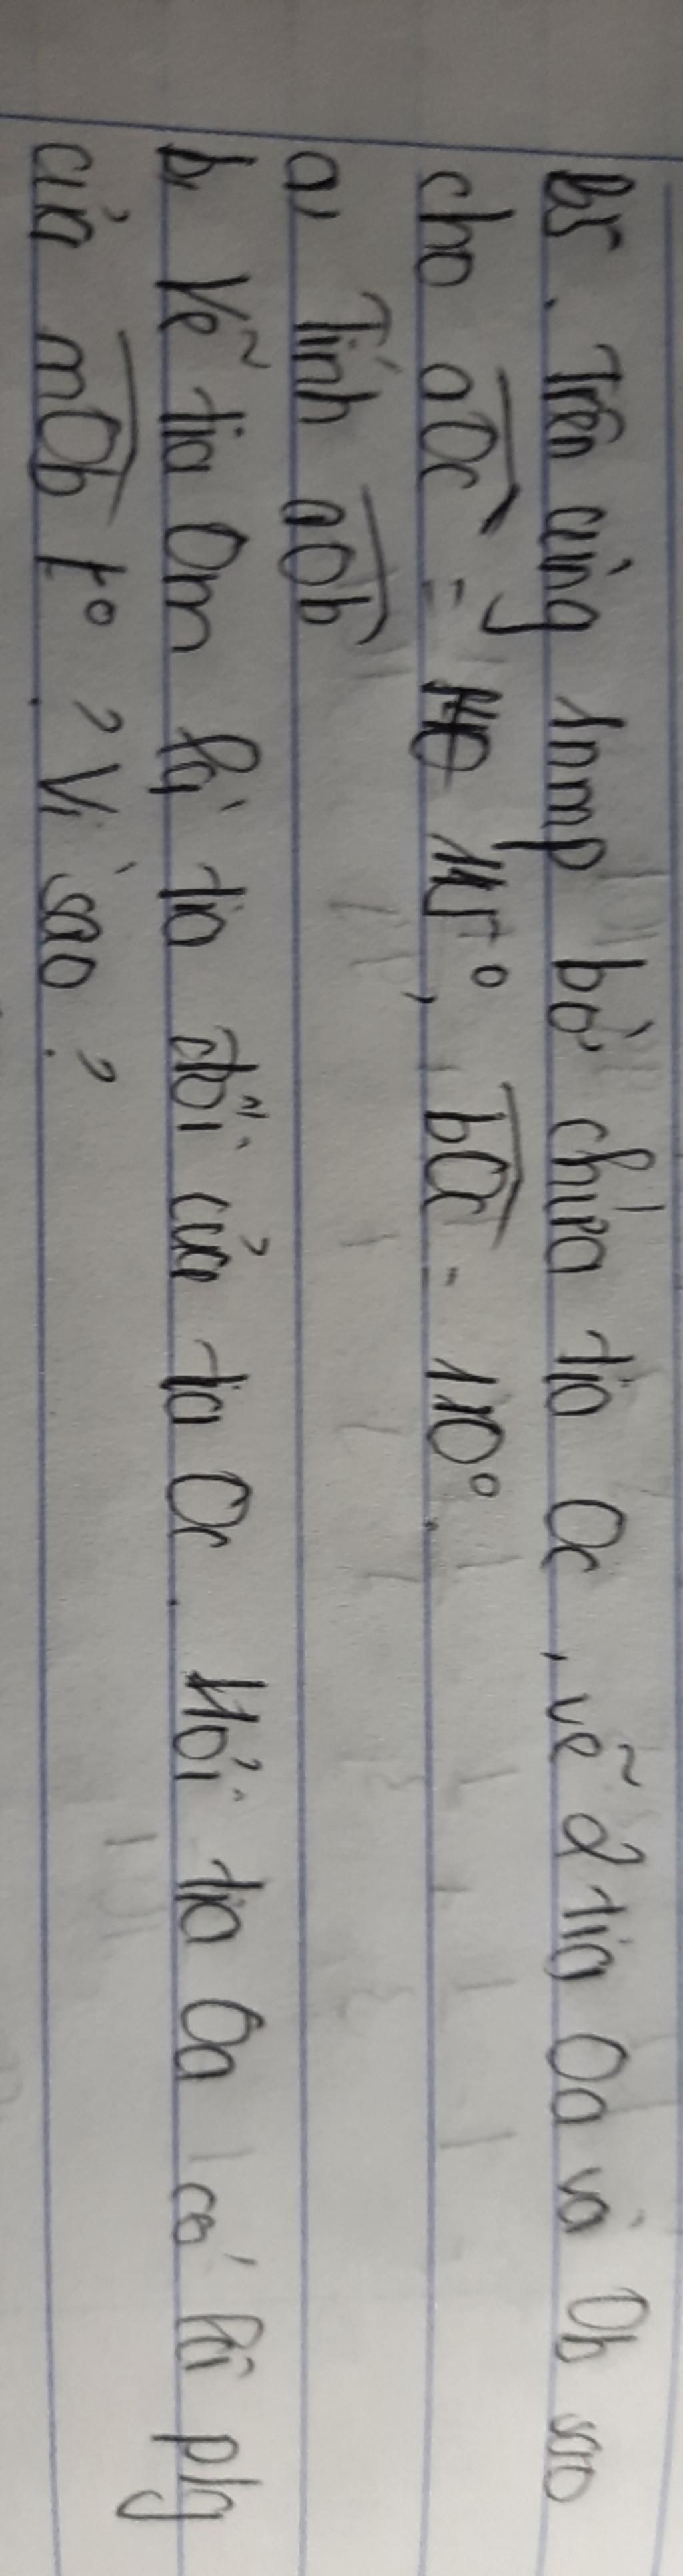 B5. Trên cùng 1nmp bờ chứa tia Oc, vẽ 2 tia Oa và Ob sao
cho aOc = 145°, bOc = 110°.
a, Tính aOb
b, Vẽ tia Om là tia đối của tia Oc. Hỏi tia Oa có là p/g
của mOb k° ? Vì sao ?